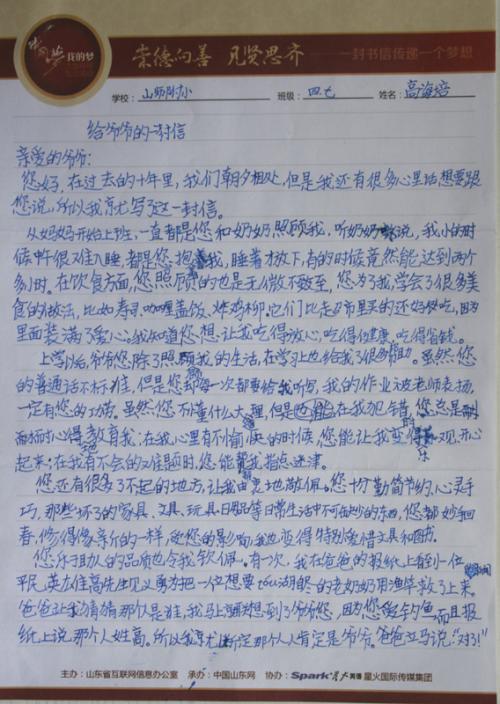 中国梦 我的梦
崇德向善 见贤思齐 一封书信传递一个梦想
学校: 山师附小 班级: 四七 姓名: 高海培
给爷爷的一封信
亲爱的爷爷:
您好,在过去的十年里,我们朝夕相处,但是我还有很多心里话想要跟
您说,所以我就写了这一封信。
从妈妈开始上班,一直都是您和奶奶照顾我,听奶奶说,我小的时
候很难入睡,都是您抱我,睡着才放下,有的时候竟然能达到两个
多小时。在饮食方面,您照顾的也是无微不致,您为了我,学会了很多美
食的做法,比如寿司、咖喱盖饭、炸鸡柳。它们比超市里买的还好吃,因为
里面装满了爱心;我知道您想让我吃得放心,吃得健康,吃得省钱。
上学以后,爷爷您除了照顾我的生活,在学习上也给我了很多帮助。虽然您
的普通话不标准,但是您却每一次都要给我听写,我的作业被老师表扬,
一定有您的功劳。虽然您不懂什么大理,但是也能在我犯错,您总是耐
心得教育我;在我心里有不愉快的时候,您能让我变得乐观、开心
起来;在我有不会的难题时,您能帮我指点迷津。
您还有很多了不起的地方,让我由衷地敬佩。您十分勤简节约,心灵手
巧,那些坏了的家具、文具、玩具、日用品等日常生活中不可缺少的东西,您都妙手回
春,修得像新的一样,受您的影响,我也变得特别爱惜文具和图书。
您乐于助人的品质也令我钦佩。有一次,我在爸爸的报纸上看到一位
平民英雄高先生见义勇为把一位想要tóu湖的老奶奶用渔竿救了上来。
爸爸让我猜猜那个是谁,我马上联想到了爷爷您,因为您爱钓鱼而且报
纸上说那个人姓高。所以我就断定那个人肯定是爷爷。爸爸立马说:“对了!”
主办:山东省互联网信息办公室 承办:中国山东网 协办:Spark星火英语 星火国际传媒集团